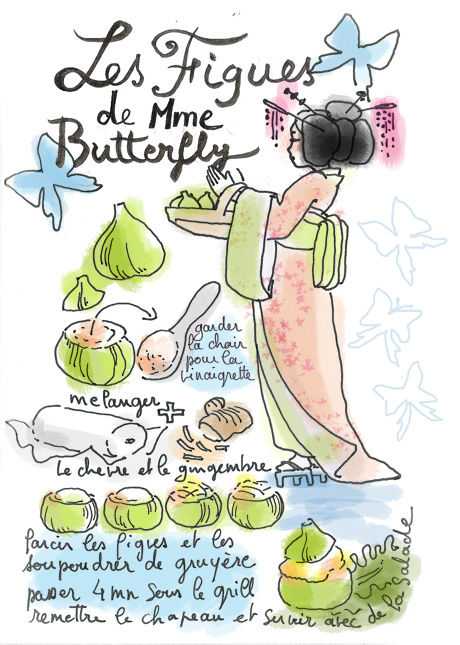 Les Figues
de Mme
Butterfly
garder
la chair
pour la
vinaigrette
melanger +
Le chèvre et le gingembre
Farcir les figues et les
soupoudrer de gruyère
passer 4 mn sous le grill
remettre le chapeau et servir avec de la salade